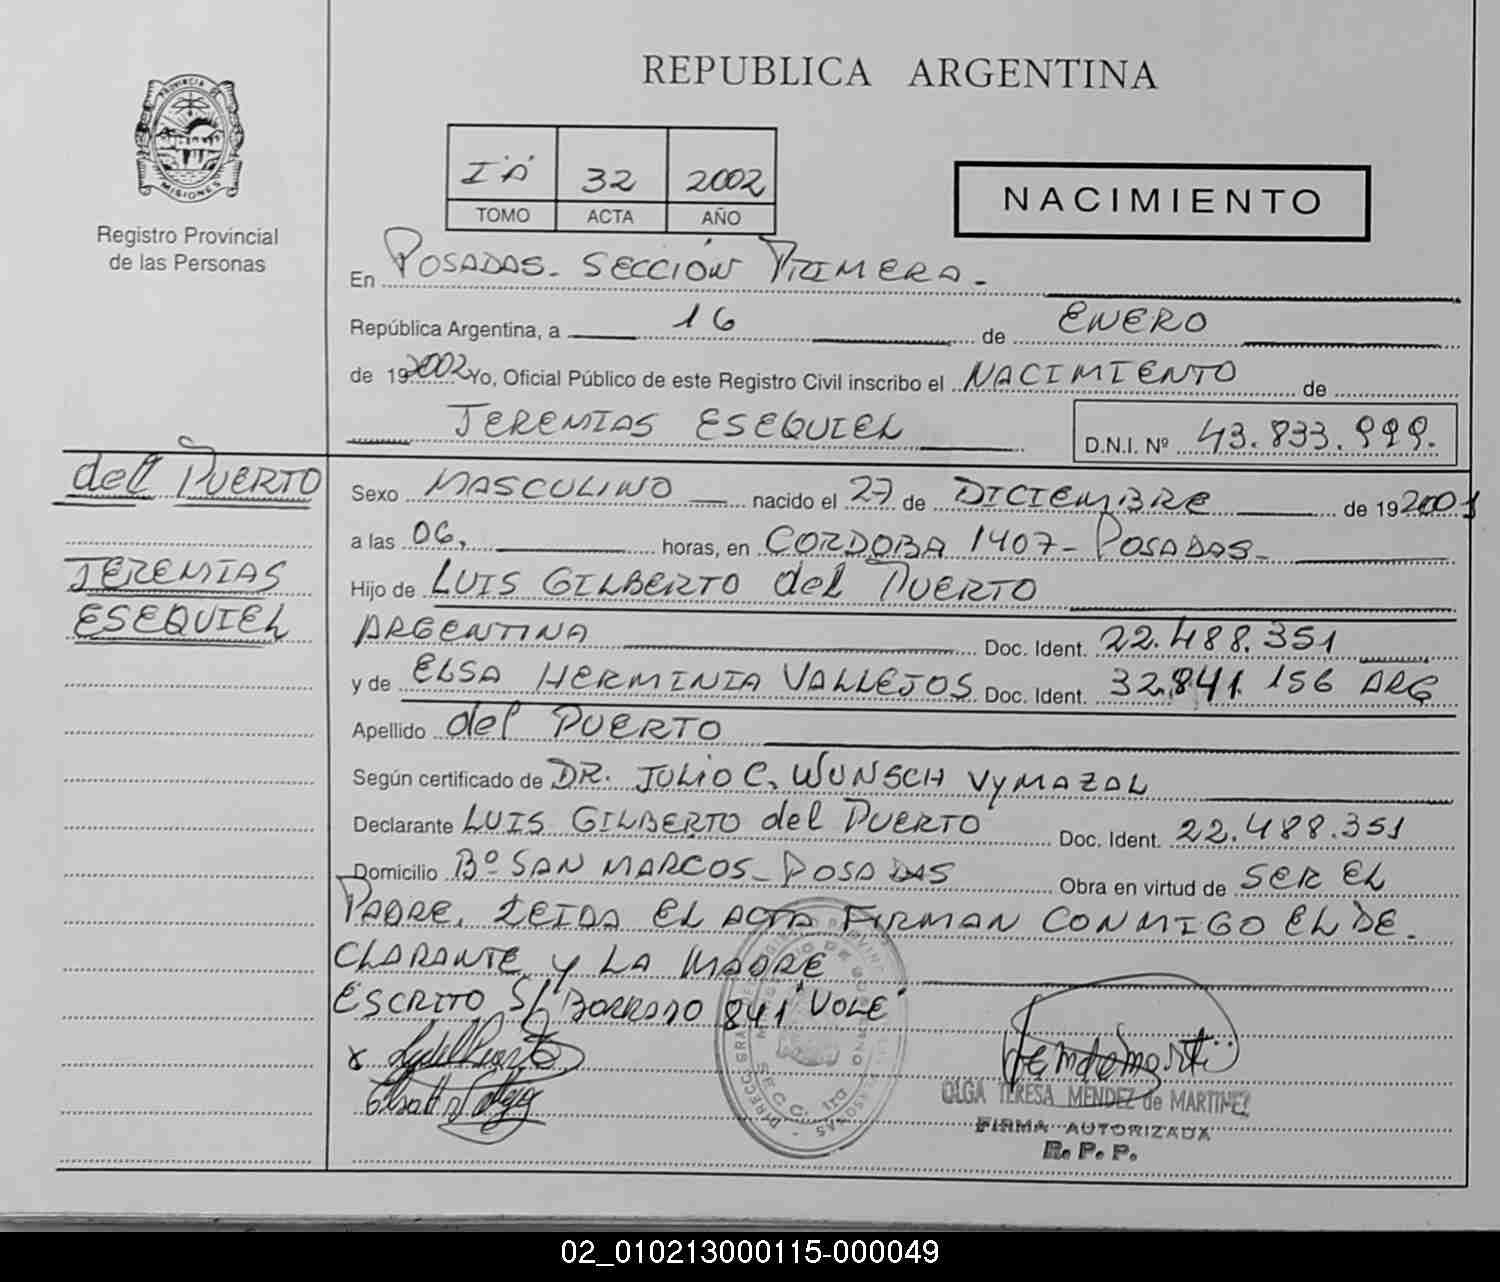 REPUBLICA ARGENTINA
PROVINCIA DE
MISIONES
Registro Provincial
de las Personas
I "A" 32 2002
TOMO ACTA AÑO
NACIMIENTO
En POSADAS - SECCIÓN PRIMERA -
República Argentina, a 16 de ENERO
de 19 2002 Yo, Oficial Público de este Registro Civil inscribo el NACIMIENTO de
JEREMIAS ESEQUIEL D.N.I. Nº 43.833.999.
del PUERTO
JEREMIAS
ESEQUIEL
Sexo MASCULINO nacido el 27 de DICIEMBRE de 19 2001
a las 06, horas, en CORDOBA 1407 - POSADAS -
Hijo de LUIS GILBERTO del PUERTO
ARGENTINA Doc. Ident. 22.488.351
y de ELSA HERMINIA VALLEJOS Doc. Ident. 32.841.156 ARG
Apellido del PUERTO
Según certificado de DR. JULIO C. WUNSCH VYMAZAL
Declarante LUIS GILBERTO del PUERTO Doc. Ident. 22.488.351
Domicilio Bº SAN MARCOS - POSADAS Obra en virtud de SER EL
PADRE. LEIDA EL ACTA FIRMAN CONMIGO EL DE-
CLARANTE y LA MADRE
ESCRITO S/ BORRADO 841 "VALE"
OLGA TERESA MENDEZ de MARTINEZ
FIRMA AUTORIZADA
R. P. P.
02_010213000115-000049